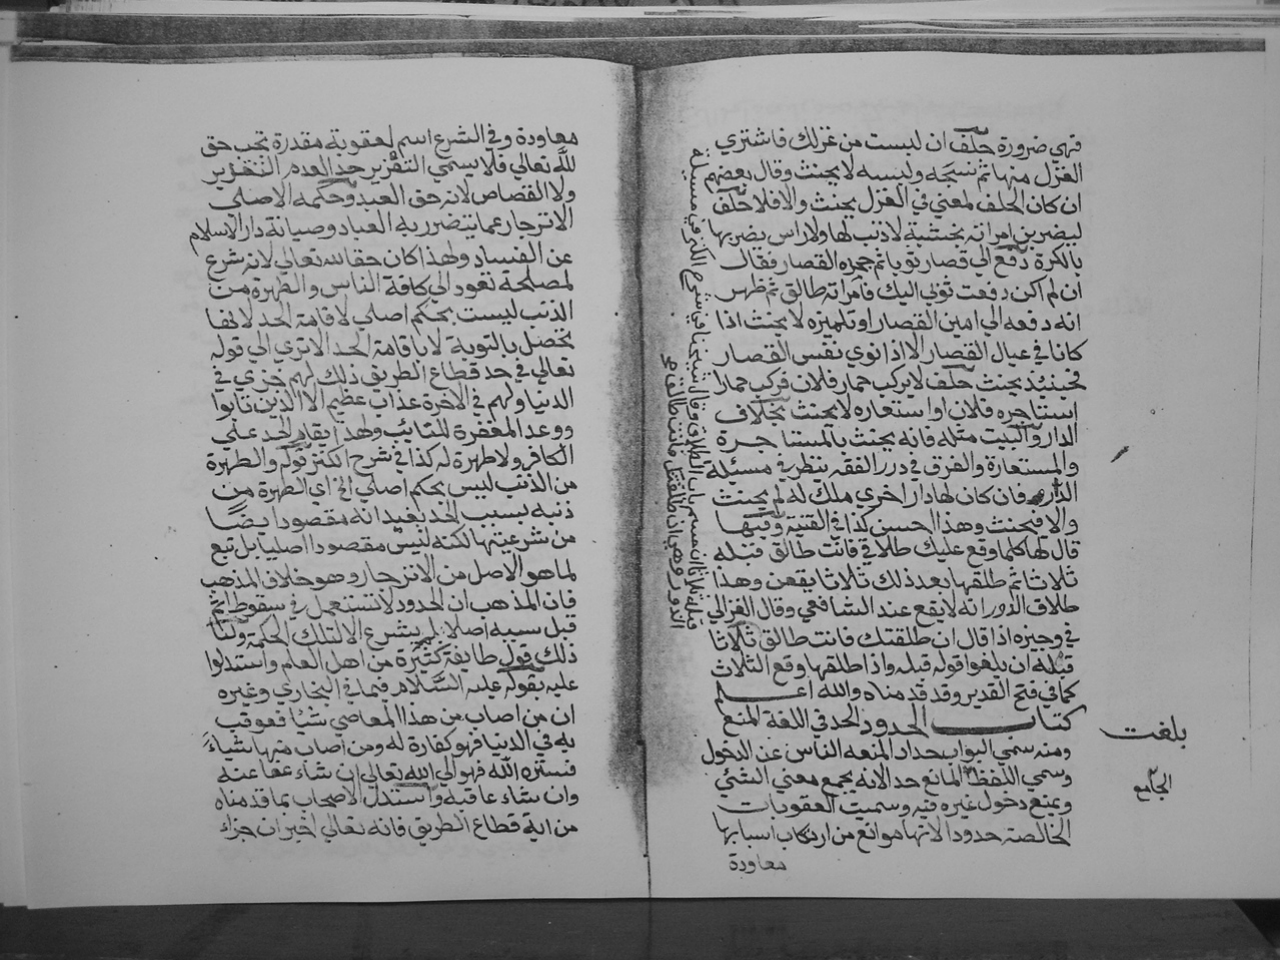 فهي ضرورة حلف ان لبست من غزلك فاشتري
الغزل منها ثم نسجه ولبسه لا يحنث وقال بعضهم
ان كان الحلف لمعني في الغزل يحنث والا فلا حلف
ليضربن امراته بخشبة لا ذنب لها ولا راس يضربها
بالكرة دفع الي قصار ثوبا ثم جحده القصار فقال
ان لم اكن دفعت ثوبي اليك فامراته طالق ثم ظهر
انه دفعه الي امين القصار او تلميذه لا يحنث اذا
كانا في عيال القصار الا اذا نوي نفس القصار
فحينئذ يحنث حلف لا يركب حمار فلان فركب حمارا
استاجره فلان او استعاره لا يحنث بخلاف
الدار والبيت مثله فانه يحنث بالمستاجرة
والمستعارة والفرق في درر الفقه ينظر في مسئلة
الدار فان كان لها دار اخري ملك له لم يحنث
والا فيحنث وهذا احسن كذا في القنية وفيها
قال لها كلما وقع عليك طلاقي فانت طالق قبله
ثلاثا ثم طلقها بعد ذلك ثلاثا يقعن وهذا
طلاق الدور انه لا يقع عند الشافعي وقال الغزالي
في وجيزه اذا قال ان طلقتك فانت طالق ثلاثا
قبله ان يلغوا قوله قبله واذا طلقها وقع الثلاث
كما في فتح القدير وقد قدمناه والله اعلم
كتاب الحدود الحد في اللغة المنع
ومنه سمي البواب حداد المنعه الناس عن الدخول
وسمي اللفظ المانع حد الانه يجمع معني الشئ
ويمنع دخول غيره فيه وسميت العقوبات
الخالصة حدودا لانها موانع من ارتكاب اسبابها
معاودة
بلغت
الجامع
معاودة وفي الشرع اسم لعقوبة مقدرة تجب حق
لله تعالي فلا يسمي التعزير حد العدم التقدير
ولا القصاص لانه حق العبد وحكمه الاصلي
الانزجار عما يتضرر به العباد وصيانة دار الاسلام
عن الفساد ولهذا كان حقا لله تعالي لانه شرع
لمصلحة تعود الي كافة الناس والطهرة من
الذنب ليست بحكم اصلي لاقامة الحد لانها
تحصل بالتوبة لا باقامة الحد الا تري الي قوله
تعالي في حد قطاع الطريق ذلك لهم خزي في
الدنيا ولهم في الاخرة عذاب عظيم الا الذين تابوا
ووعد المغفرة للتائب ولهذا يقام الحد علي
الكافر ولا طهرة له كذا في شرح الكنز قوله والطهرة
من الذنب ليس بحكم اصلي الخ اي الطهرة من
ذنبه بسبب الحد يفيد انه مقصود ايضا
من شرعيتها لكنه ليس مقصودا اصليا بل تبع
لما هو الاصل من الانزجار وهو خلاف المذهب
فان المذهب ان الحدود لا تستعمل في سقوط اثم
قبل سببه اصلا بل لم يشرع الا لتلك الحكمة ولنا
ذلك قول طايفة كثيرة من اهل العلم واستدلوا
عليه بقوله عليه السلام فيما في البخاري وغيره
ان من اصاب من هذا المعاصي شيا فعوقب
به في الدنيا فهو كفارة له ومن اصاب منها شياء
فستره الله فهو الي الله تعالي ان شاء عفا عنه
وان شاء عاقبه واستدل الاصحاب بما قدمناه
من اية قطاع الطريق فانه تعالي اخبر ان جزاء